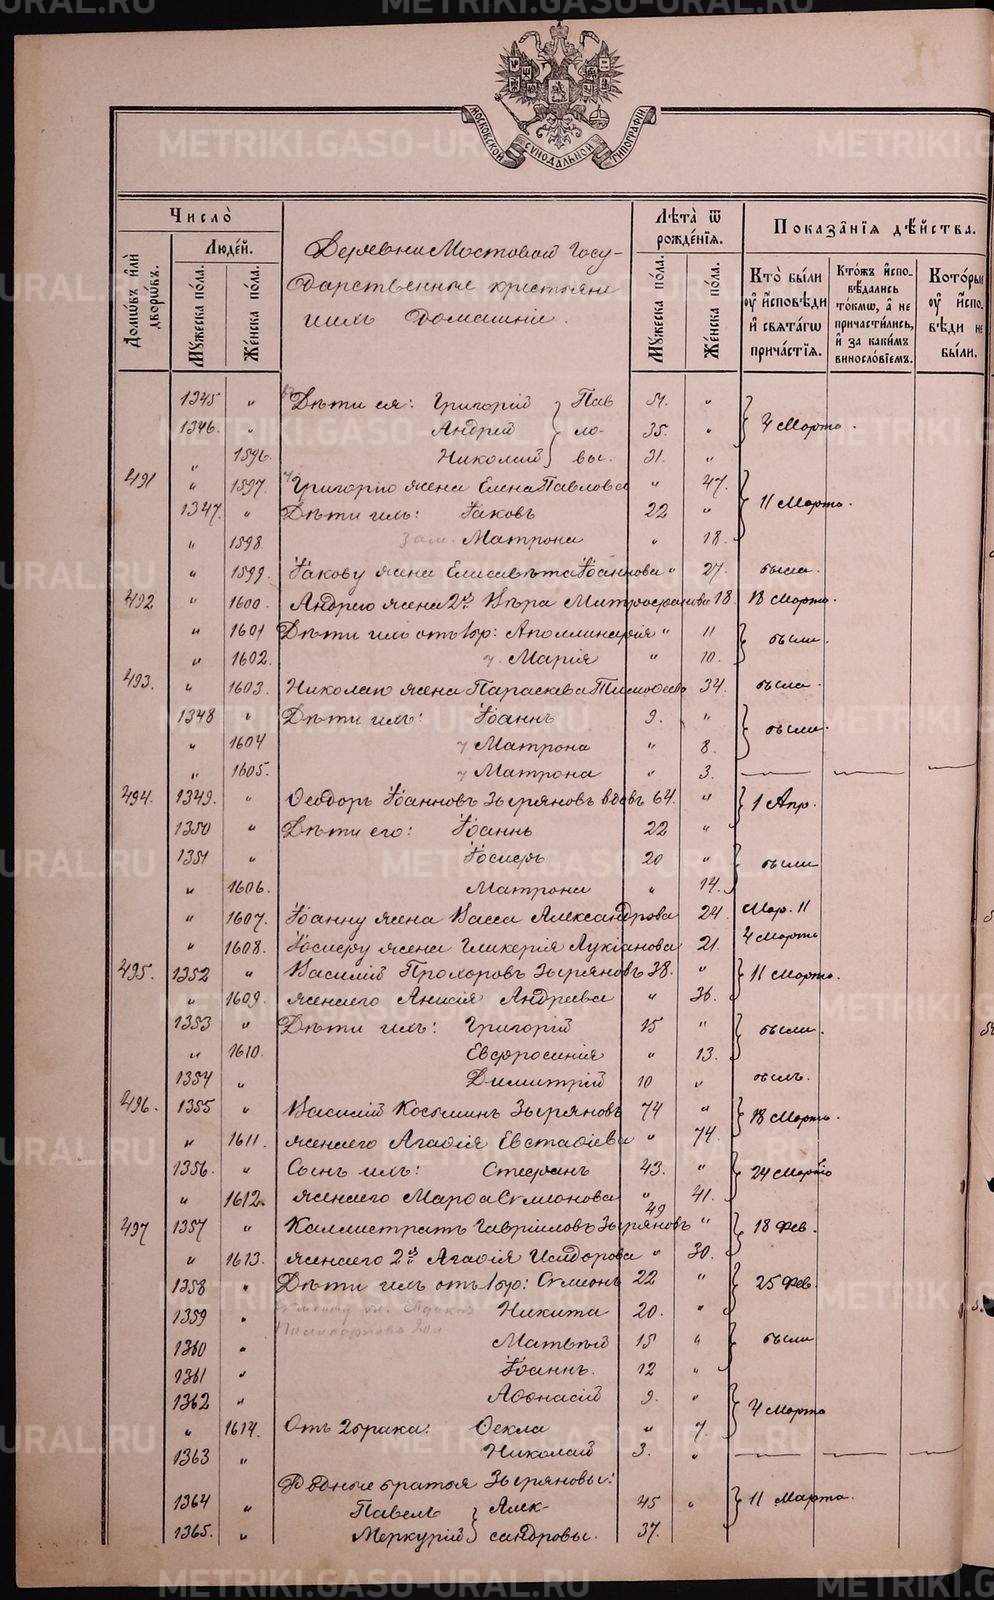 МОСКОВСКОЙ СѴНОДАЛЬНОЙ ТИПОГРАФІИ
Число̀
Домѡ́въ и҆лѝ дворѡ́въ.
Люде́й.
Мꙋ́жеска по́ла.
Же́нска по́ла.
Деревни Мостовой Госу-
дарственные крестьяне
и ихъ домашніе.
Лѣ̑та ѿ рожде́нїѧ.
Мꙋ́жеска по́ла.
Же́нска по́ла.
Показа̑нїѧ дѣ́йства.
Кто̀ бы́ли оу҆ и҆сповѣди и҆ свѧта́гѡ прича́стїѧ.
Кто́жъ и҆спо- вѣ́дались то́кмѡ, а҆ не причасти́лись, и҆ за каки́мъ винословїемъ.
Кото́рые оу҆ и҆спо- вѣ́ди не бы́ли.
1345 " Дѣти ея: Григорій Пав 51. " 4 Марта.
1346. " Андрей ло- 35. "
" 1596. Николай вы. 31. "
491 " 1597. Григорію жена Елена Павлова " 47. 11 Марта.
1347. " Дѣти ихъ: Іаковъ 22 "
" 1598. Матрона " 18.
" 1599. Іакову жена Елисавета Іоаннова " 27. была.
492 " 1600. Андрею жена 2я Вѣра Митрофанова 18. 18 Марта.
" 1601 Дѣти ихъ отъ 1 бр: Аполлинарія " 11 были.
" 1602. Марія " 10.
493. " 1603. Николаю жена Параскева Тимофеев 34. была.
1348 " Дѣти ихъ: Іоаннъ 9. " были.
" 1604 Матрона " 8.
" 1605. Матрона " 3.
494. 1349. " Ѳеодоръ Іоанновъ Зыряновъ вдовъ 64. " 1 Апр.
1350 " Дѣти его: Іоаннъ 22 "
1351 " Іосифъ 20 " были
" 1606. Матрона " 14.
" 1607. Іоанну жена Васса Александрова 24. Мар. 11
" 1608. Іосифу жена Гликерія Лукіанова 21. 4 Марта
495. 1352 " Василій Прохоровъ Зыряновъ 38. " 11 Марта.
" 1609. жена его Анисія Андреева " 36.
1353 " Дѣти ихъ: Григорій 15 " были.
" 1610. Евфросинія " 13.
1354 " Димитрій 10 " былъ.
496. 1355 " Василій Косьминъ Зыряновъ 74 " 18 Марта.
" 1611. жена его Агафія Евстафіева " 74.
1356. " Сынъ ихъ: Стефанъ 43. " 24 Марта
" 1612. жена его Марфа Симонова " 41.
497 1357 " Каллистратъ Гавриловъ Зыряновъ 49 " 18 Фев.
" 1613. жена его 2я Агафія Исидорова " 30.
1358 " Дѣти ихъ отъ 1 бр: Симеонъ 22 " 25 Фев.
1359 " Никита 20. "
1360 " Матвѣй 15 " были
1361 " Іоаннъ. 12 "
1362 " Афонасій 9. " 4 Марта
" 1614. Отъ 2 брака: Ѳекла " 7.
1363 " Николай 3. "
Родные братья Зыряновы:
1364 " Павелъ Алек- 45 " 11 Марта.
1365. " Меркурій сандровы. 37.
METRIKI.GASO-URAL.RU